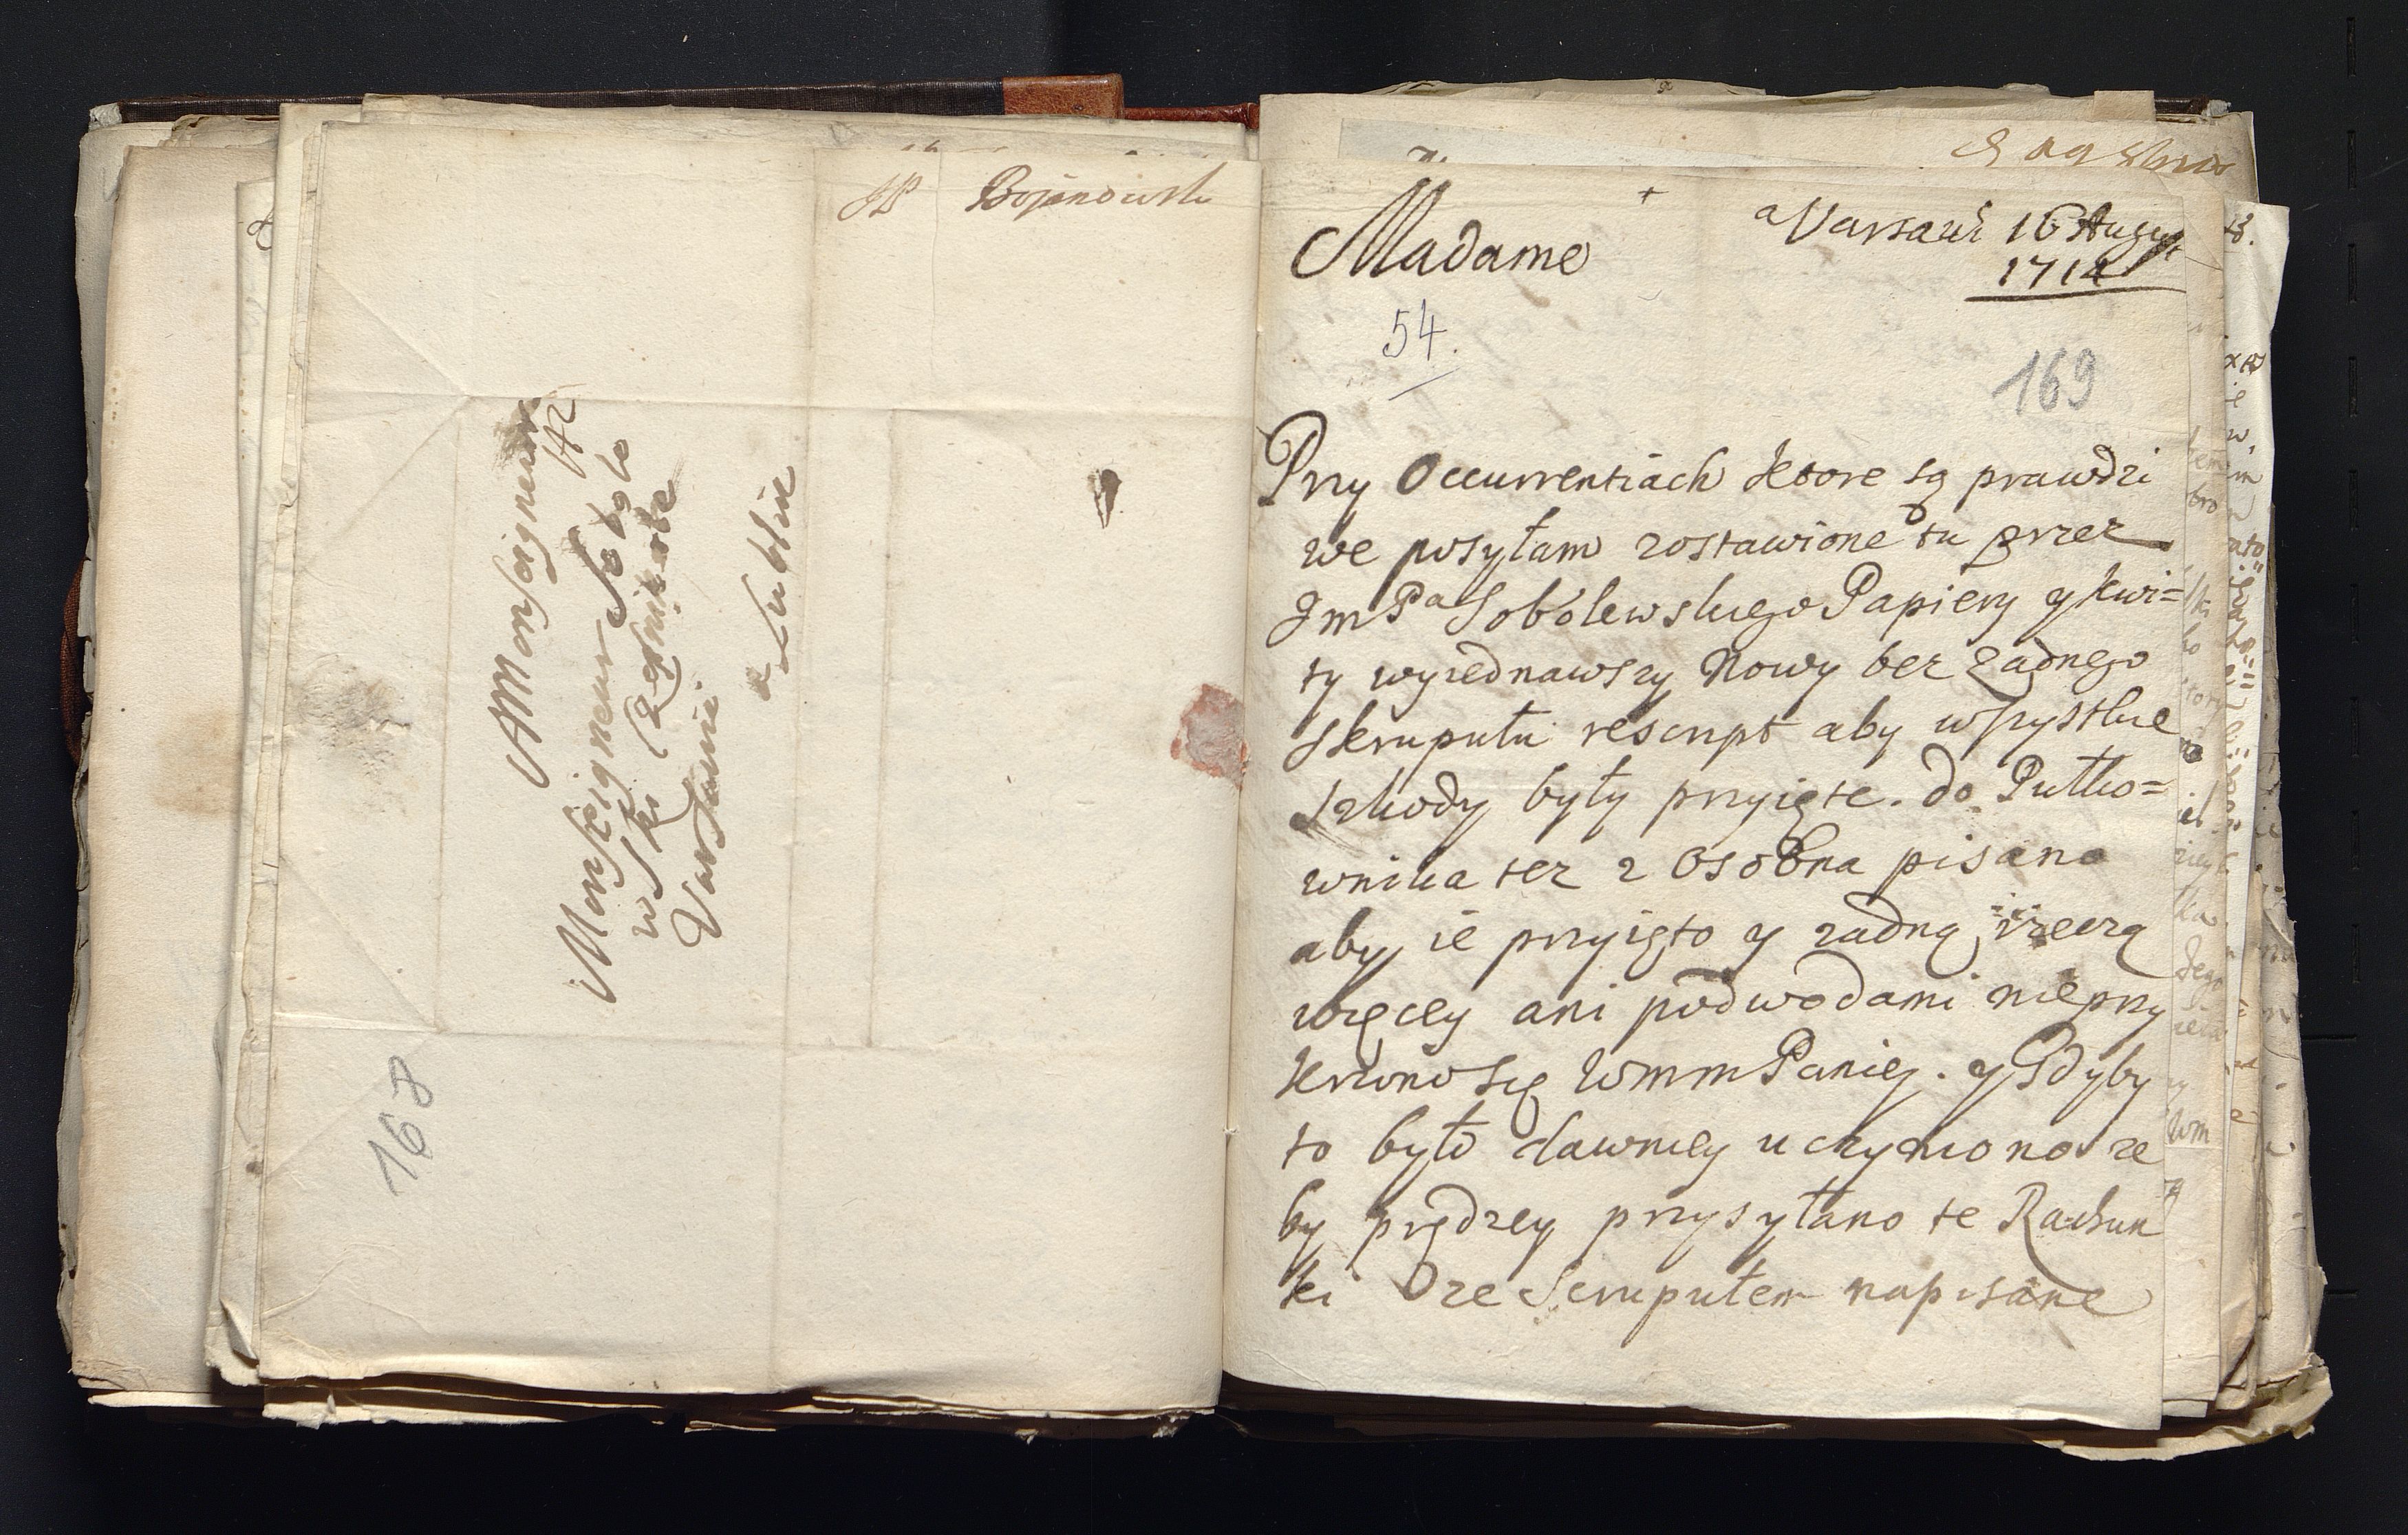 JP Bojanowski
A Monseigneur
Monseigneur Sobole
wski
Varsovie
a Lublin
168
Madame
a Varsavie 16 August
1714
54.
169
Przy Occurrentiach ktore są prawdzi
we posyłam zostawione tu przez
Jm Pa Sobolewskiego Papiery y kwi=
ty wyiednawszy Nowy bez żadnego
skrupułu rescript aby wszystkie
szkody były przyięte. do Pułko=
wnika tez z osobna pisano
aby ie przyięto y zadną rzeczą
więcey ani podwodami nieprzy
krzono się WmmPaniey. y Gdyby
to było dawniey uczyniono ze
by prędzey przysyłano te Rachun
ki ze Scrupułem napisane